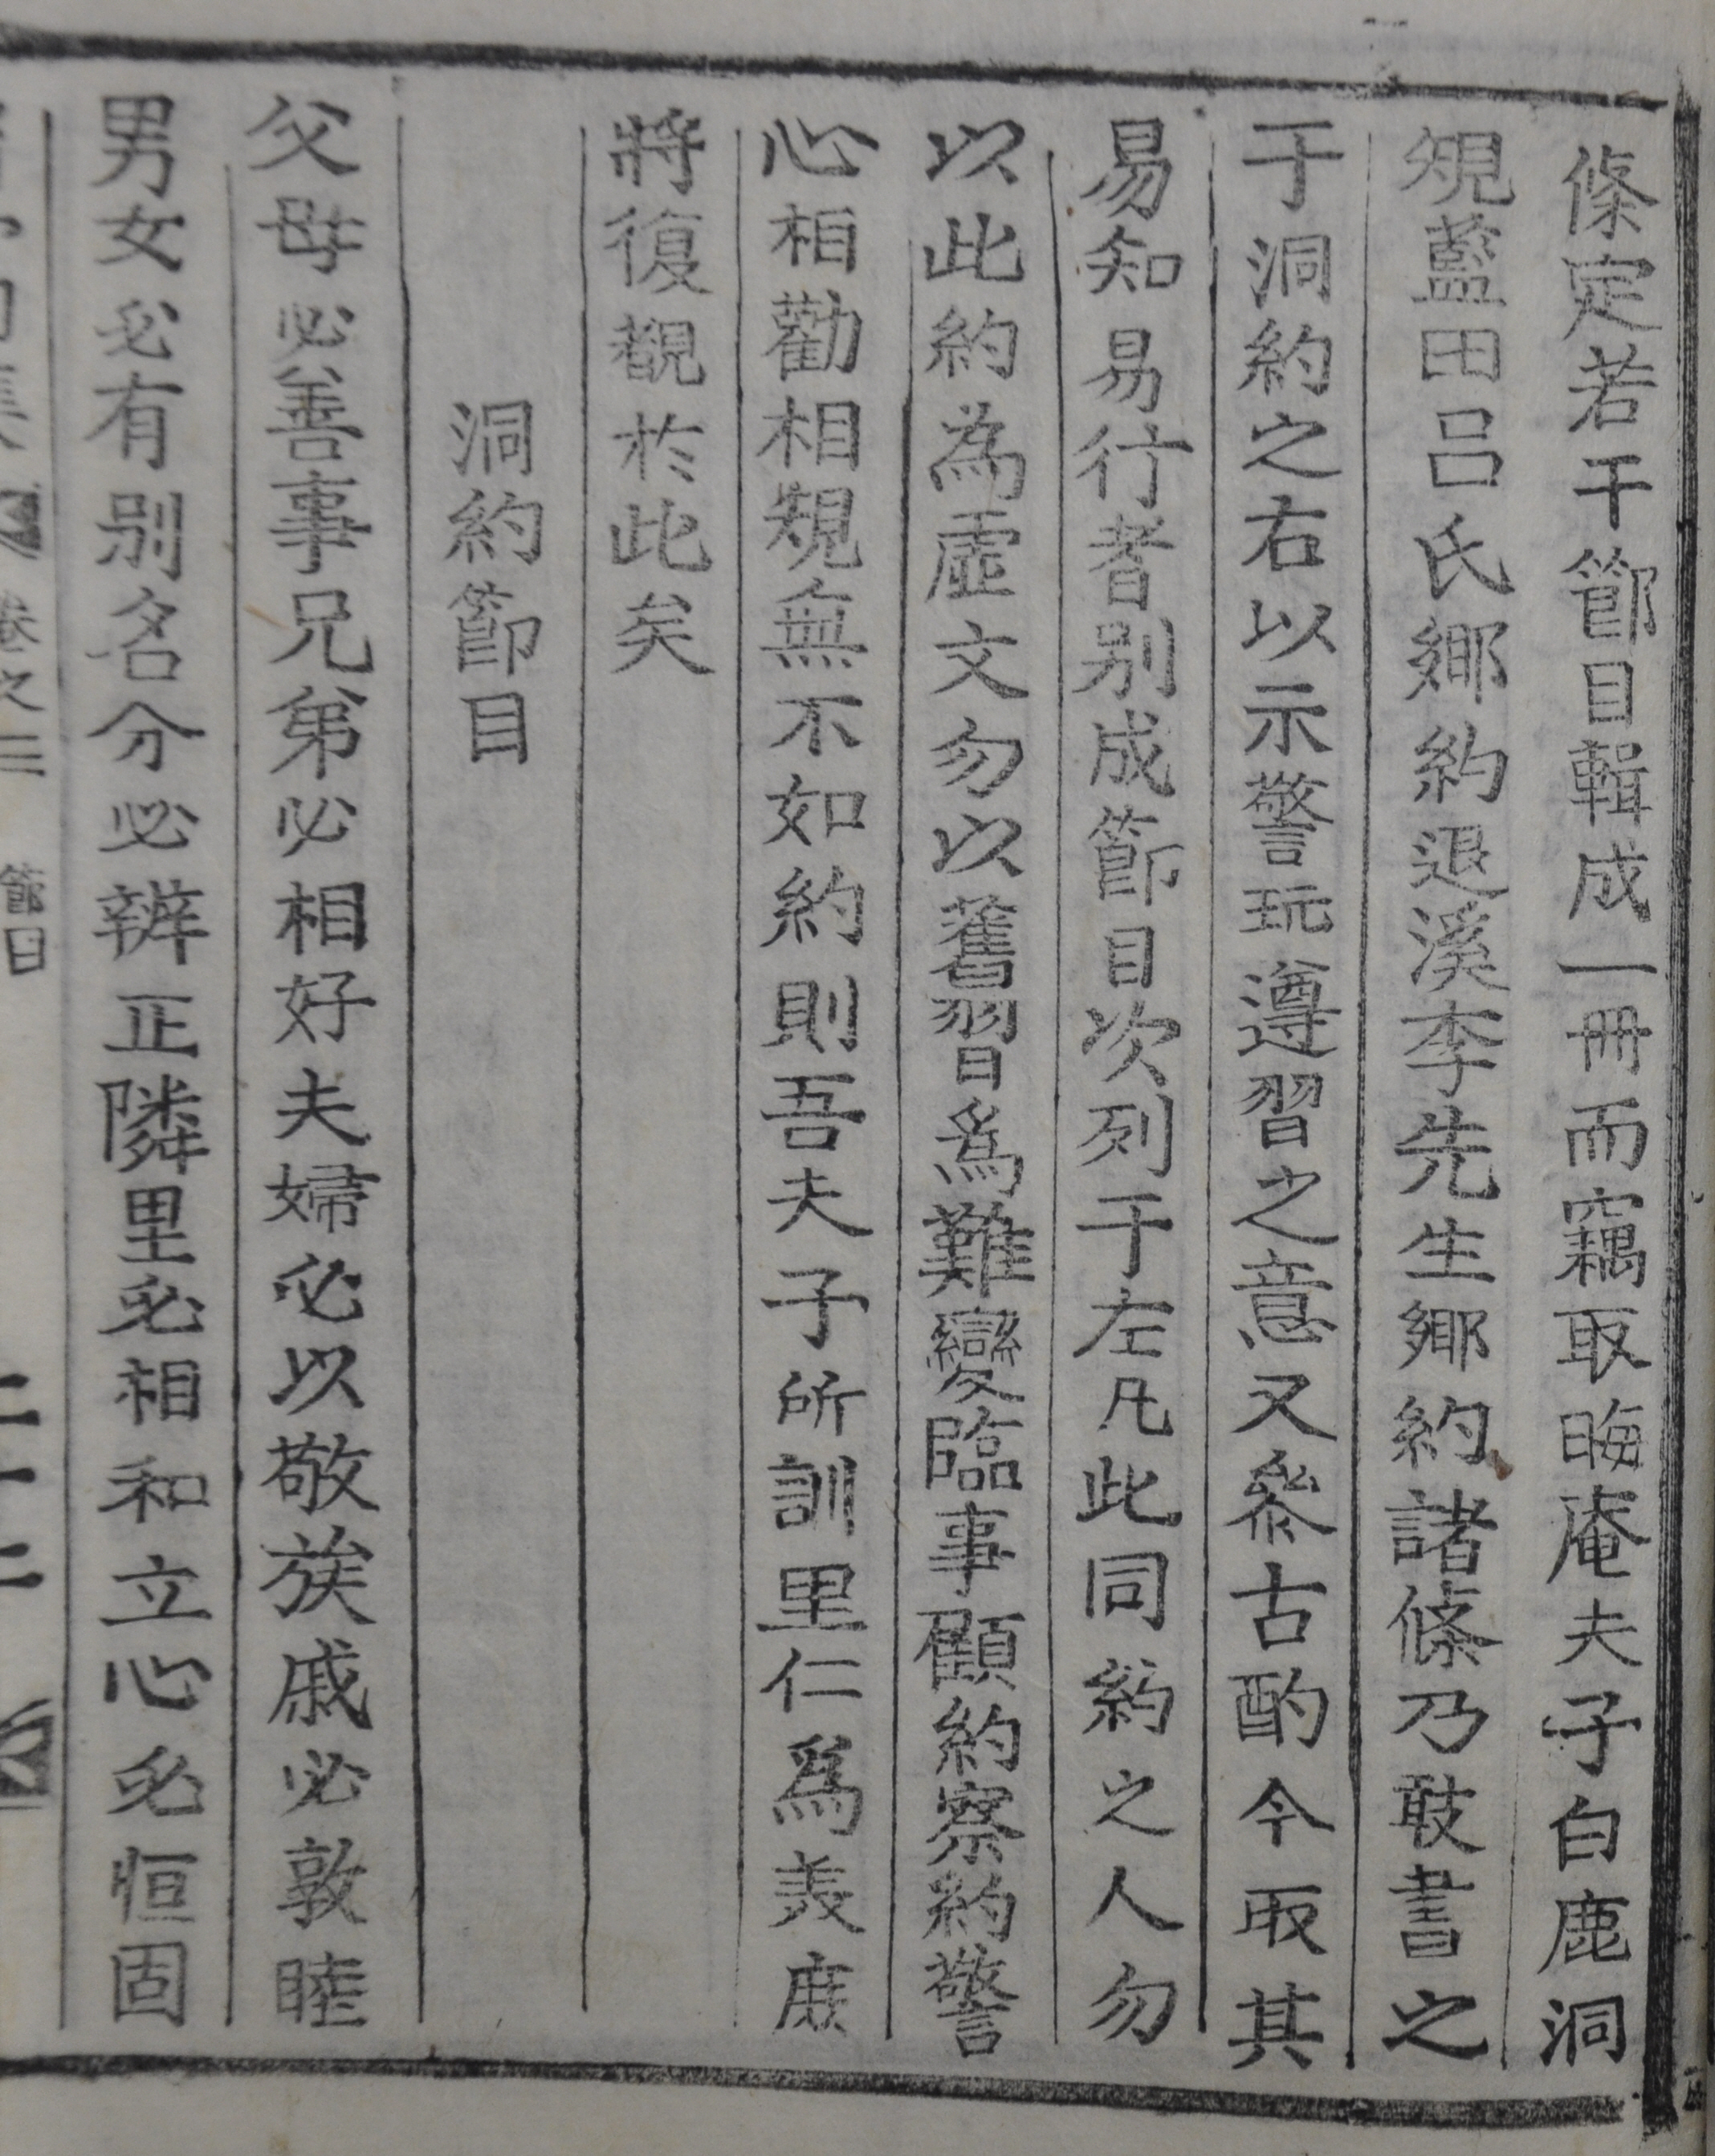 條定若干節目輯成一冊而竊取晦庵夫子白鹿洞
規藍田呂氏鄕約退溪李先生鄕約諸條乃敢書之
于洞約之右以示警玩遵習之意又叅古酌今取其
易知易行者別成節目次列于左凡此同約之人勿
以此約為虛文勿以舊習爲難變臨事顧約察約警
心相勸相規無不如約則吾夫子所訓里仁爲美庶
將復覩於此矣
洞約節目
父母必善事兄弟必相好夫婦必以敬族戚必敦睦
男女必有別名分必辨正隣里必相和立心必恒固
卷之三 節目 二十二